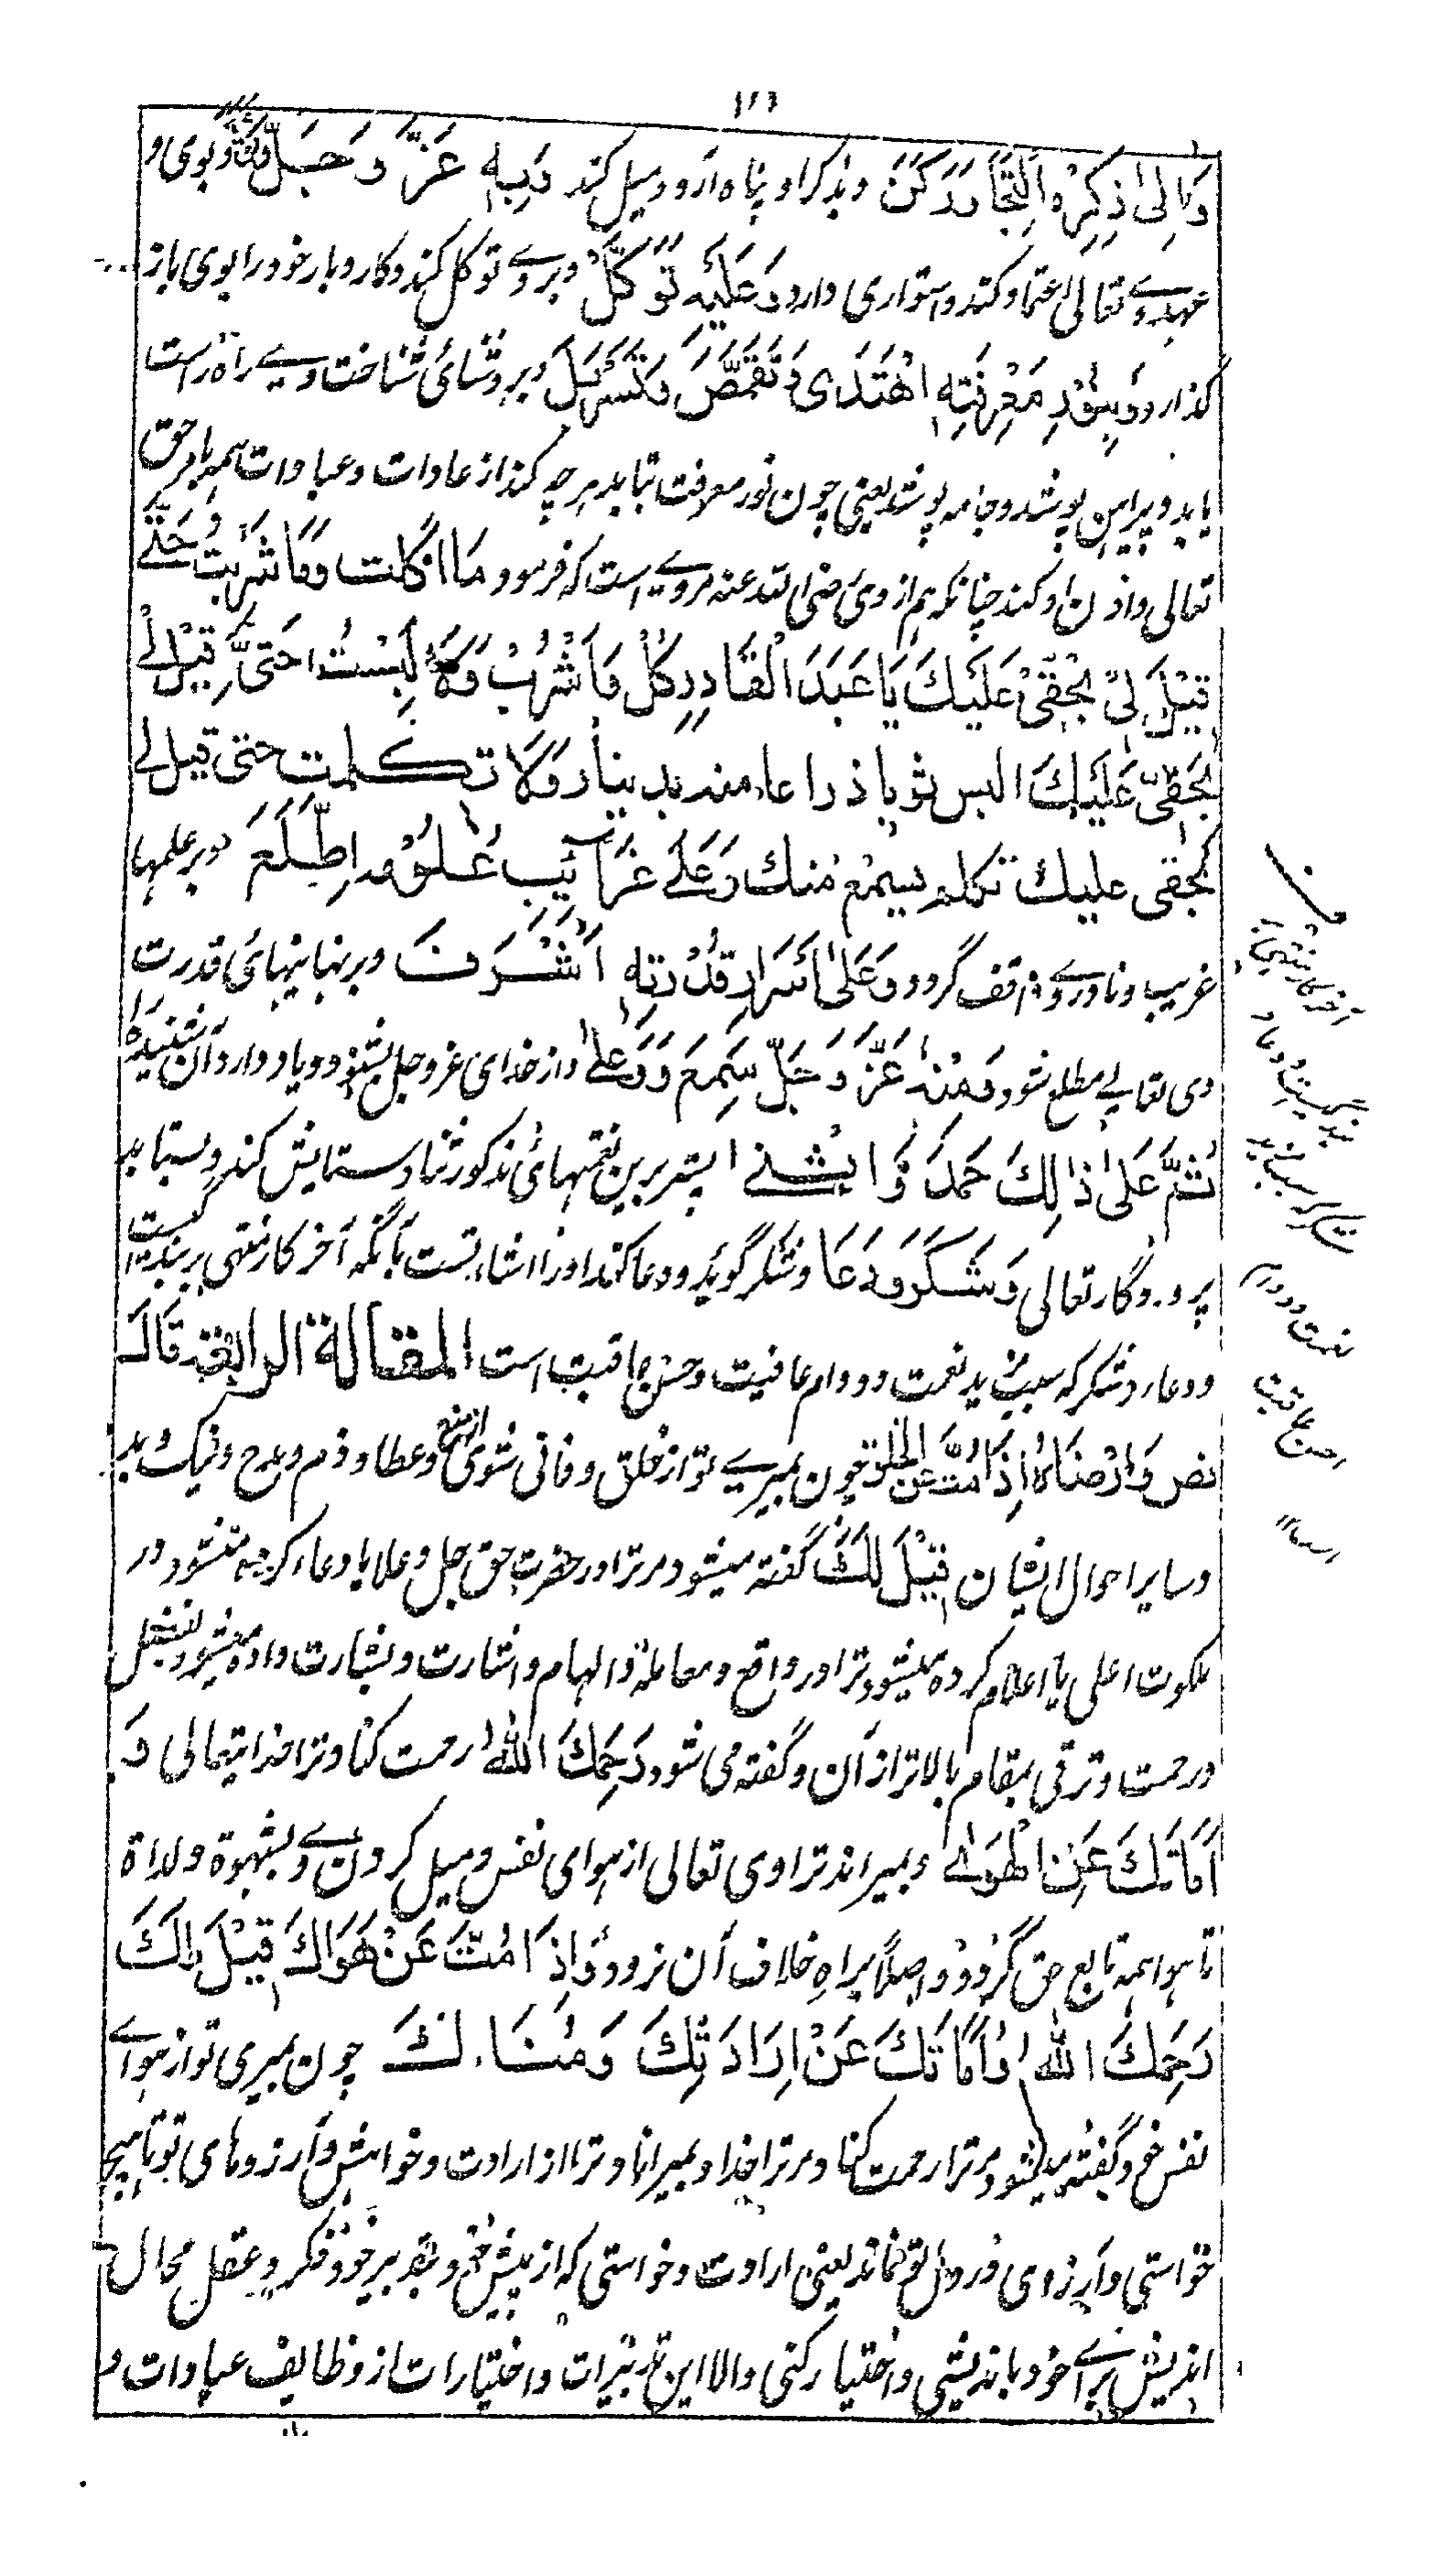 ۱۲۶
وَاِلیٰ ذِکرِہٖ اِلْتَجَأَ وَرَکَنَ وبذکر او پناہ آرد ومیل کند وَبِہٖ عَزَّ وَجَلَّ وَثِقَ وبوی و
عہد وے تعالیٰ اعتماد کند واستواری دارد وَعَلَیْہِ تَوَکَّلَ وبروے توکل کند وکار وبار خود را بوی باز
گذارد وَبِنُوْرِ مَعْرِفَتِہٖ اھْتَدَی وَتَقَمَّصَ وَتَسَرْبَلَ وبروشنائی شناخت وے راہ راست
یابد وپیراہن پوشد وجامہ پوشد یعنی چون نور معرفت بتابد ہرچہ کند از عادات وعبادات ہمہ بامر حق
تعالی واذن او کند چنانکہ ہم از وی رضی اللہ عنہ مروے است کہ فرمود مَا اکلت وَمَا شَرِبْتُ حَتّٰے
قِیْلَ لِیْ بِحَقِّیْ عَلَیْكَ یَا عَبْدَ الْقَادِرِ کُلْ وَاشْرَبْ وَمَا لَبِسْتُ حَتّیٰ قِیْلَ لِے
بِحَقِّیْ عَلَیْكَ البس ثوبا ذراعا منہ بدینار وَلَا تکلمت حتی قیل لے
بحقی علیك تکلم یسمع مِنك وَعَلٰے غَرَآئِبِ عُلُوْمِہٖ اِطَّلَعَ وبر علمہا
غریب ونادر وے واقف گردد وَعَلیٰ اَسْرَارِ قُدْرَتِہٖ اَشْرَفَ وبر نہانیہائی قدرت
وی تعالیٰ مطلع شود وَمِنْہُ عَزَّ وَجَلَّ سَمِعَ وَوَعیٰ واز خدای عز وجل بشنود ویاد دارد آن شنیدہ را
ثُمَّ عَلیٰ ذٰلِكَ حَمِدَ وَاَثْنٰے پستر برین نعمتہائی مذکور ثنا وستایش کند وبستاید
پروردگار تعالی وَشَکَرَ وَدَعَا وشکر گوید ودعا کند او را اشارتست بآنکہ آخر کار منتہی بر بندگیست
ودعا وشکر کہ سبب مزید نعمت ودوام عافیت وحسن عاقبت است المقالة الرابعة قَالَ
رض وَاَرْضَاہُ اِذَا مُتَّ عَنِ الْخَلْقِ چون بمیرے تو از خلق وفانی شوی از منع وعطا وذم ومدح ونیک وبد
وسایر احوال ایشان قِیْلَ لَكَ گفتہ میشود مر ترا در حضرت حق جل وعلا یا دعا کردہ میشود در
ملکوت اعلی یا اعلام کردہ میشود ترا در واقع ومعاملہ والہام واشارت وبشارت دادہ میشود بفضل
ورحمت وترقی بمقام بالاتر از آن وگفتہ می شود رَحِمَكَ اللّٰہُ رحمت کناد ترا خدا یتعالی وَ
اَمَاتَكَ عَنِ الْهَوٰے وبمیراند ترا وی تعالی از ہوای نفس ومیل کردن وے بشہوة ولذاة
تا ہوا ہمہ تابع حق گردد واصلاً براہ خلاف آن نرود وَاِذَا مُتَّ عَنْ هَوَاكَ قِیْلَ لَكَ
رَحِمَكَ اللّٰہُ وَاَمَاتَكَ عَنْ اِرَادَتِكَ وَمُنَاكَ چون بمیری تو از ہواے
نفس خود گفتہ میشود مر ترا رحمت کناد مر ترا خدا وبمیراناد ترا از ارادت وخواہش وآرزوہای تو تا ہیچ
خواستی وآرزوی در دل تو نماند یعنی ارادت وخواستی کہ از پیش خود وبتدبیر خود وفکر وعقل محال
اندیش براے خود باندیشی واختیار کنی والا این تدبیرات واختیارات از وظایف عبادات و
آخر کار منتہی بر
بندگیست ودعا و
شکر کہ سبب مزید
نعمت ودوام
حسن عاقبت
است ۱۲